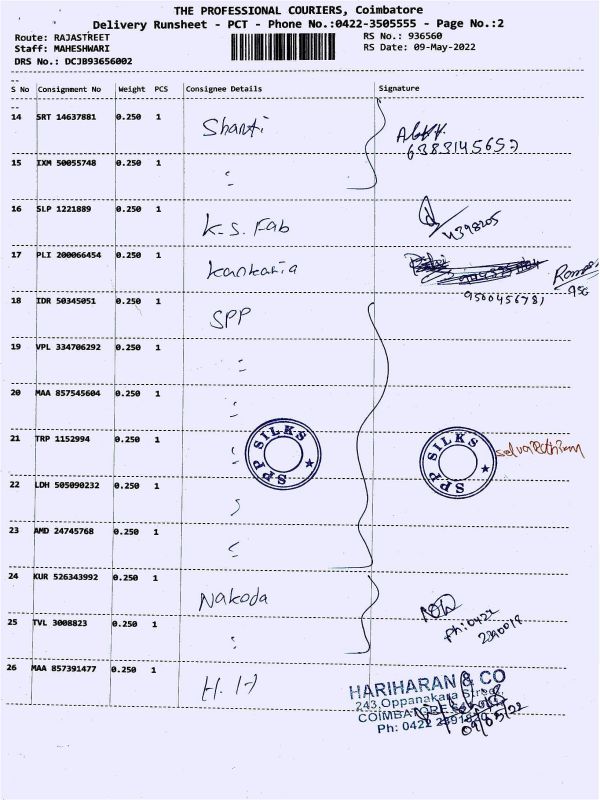 THE PROFESSIONAL COURIERS, Coimbatore
Delivery Runsheet - PCT - Phone No.:0422-3505555 - Page No.:2
Route: RAJASTREET
RS No.: 936560
Staff: MAHESHWARI
RS Date: 09-May-2022
DRS No.: DCJB93656002
S No Consignment No Weight PCS Consignee Details Signature
14 SRT 14637881 0.250 1 Shanti
15 IXM 50055748 0.250 1
16 SLP 1221889 0.250 1 K.S. Fab
17 PLI 200066454 0.250 1 Kankaria
9500456781
18 IDR 50345051 0.250 1 SPP
19 VPL 334706292 0.250 1
20 MAA 857545604 0.250 1
21 TRP 1152994 0.250 1
SPP SILKS
SPP SILKS
22 LDH 505090232 0.250 1
23 AMD 24745768 0.250 1
24 KUR 526343992 0.250 1 Nakoda
25 TVL 3008823 0.250 1
Ph: 0422
26 MAA 857391477 0.250 1 H.H
HARIHARAN & CO
243, Oppanakara Street
COIMBATORE
Ph: 0422
09/05/22